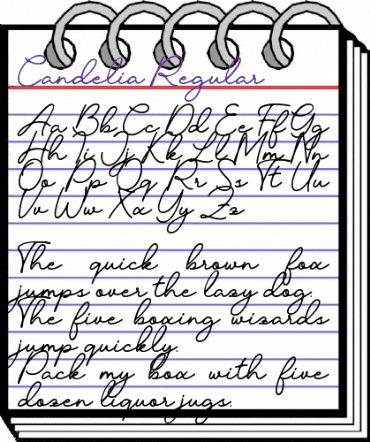 Candelia Regular
Aa Bb Cc Dd Ee Ff Gg
Hh Ii Jj Kk Ll Mm Nn
Oo Pp Qq Rr Ss Tt Uu
Vv Ww Xx Yy Zz
The quick brown fox
jumps over the lazy dog.
The five boxing wizards
jump quickly.
Pack my box with five
dozen liquor jugs.